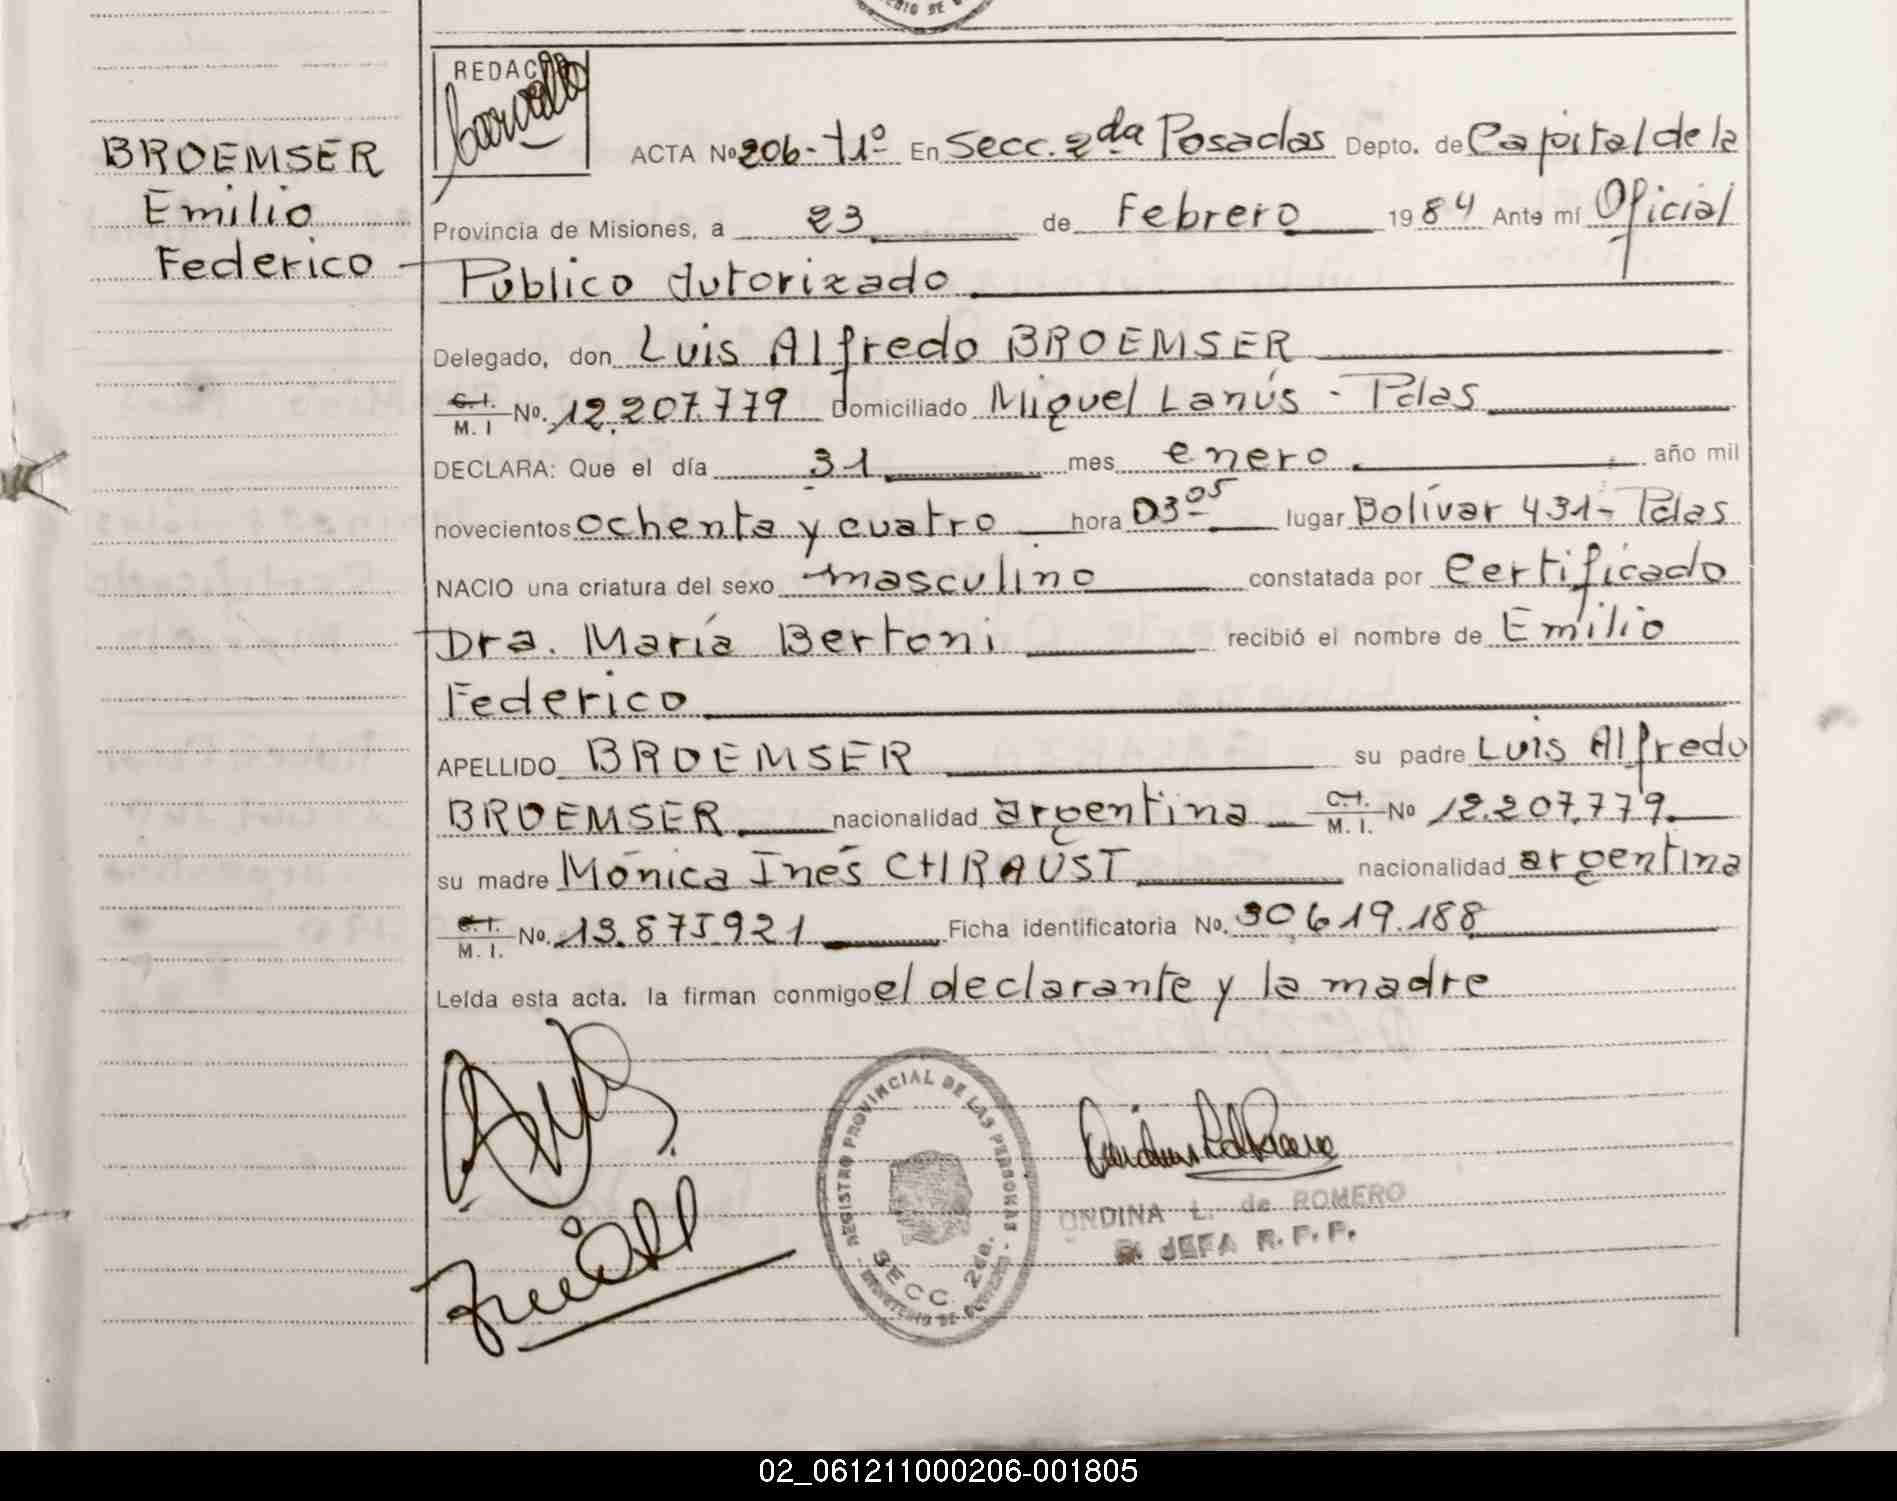 BROEMSER
Emilio
Federico
REDAC
ACTA Nº 206-t1º En Secc. 2da Posadas Depto. de Capital de la
Provincia de Misiones, a 23 de Febrero 1984 Ante mí Oficial
Publico Autorizado
Delegado, don Luis Alfredo BROEMSER
C.I. M.I Nº. 12.207.779 Domiciliado Miguel Lanús - Pdas
DECLARA: Que el día 31 mes enero año mil
novecientos ochenta y cuatro hora 03 05 lugar Bolívar 431- Pdas
NACIO una criatura del sexo masculino constatada por Certificado
Dra. María Bertoni recibió el nombre de Emilio
Federico
APELLIDO BROEMSER su padre Luis Alfredo
BROEMSER nacionalidad argentina C.I. M.I. Nº 12.207.779
su madre Mónica Inés CHRAUST nacionalidad argentina
C.I. M.I. Nº. 13.875921 Ficha identificatoria Nº. 30.619.188
Leída esta acta. la firman conmigo el declarante y la madre
REGISTRO PROVINCIAL DE LAS PERSONAS
SECC. 2da.
MINISTERIO DE GOBIERNO
ONDINA L. de ROMERO
JEFA R.P.P.
02_061211000206-001805